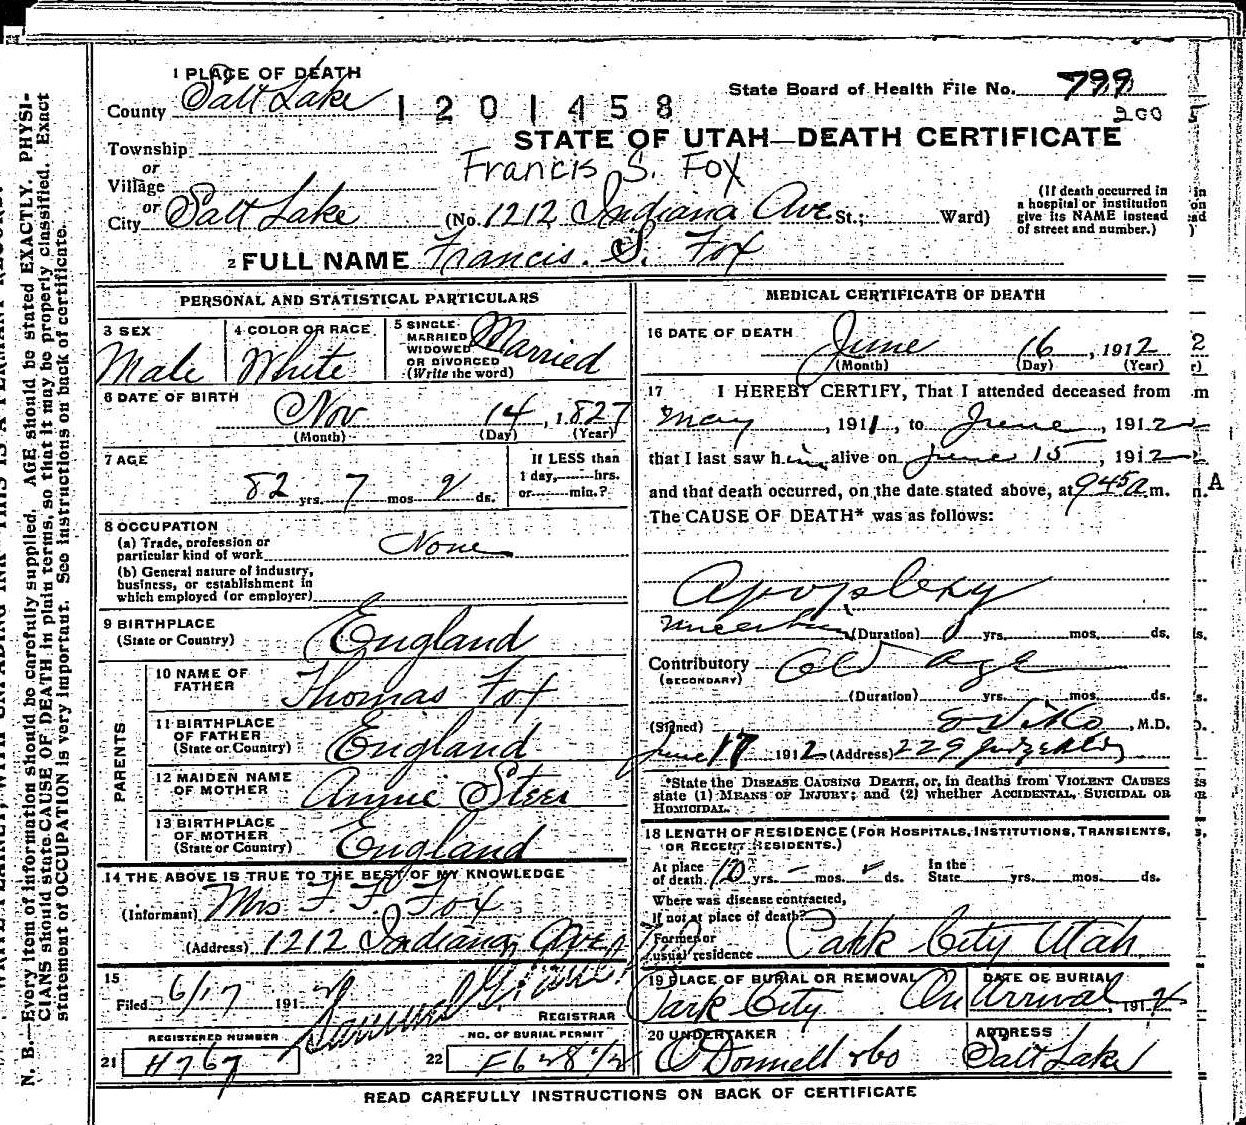 1 PLACE OF DEATH
County Salt Lake 1201458
State Board of Health File No. 799
200
STATE OF UTAH—DEATH CERTIFICATE
Township
or
Village
Francis S. Fox
or
City Salt Lake (No. 1212 Indiana Ave St.; Ward)
(If death occurred in
a hospital or institution
give its NAME instead
of street and number.)
2 FULL NAME Francis. S. Fox
PERSONAL AND STATISTICAL PARTICULARS
3 SEX
Male
4 COLOR OR RACE
White
5 SINGLE
MARRIED
WIDOWED
OR DIVORCED
(Write the word)
Married
6 DATE OF BIRTH
Nov 14, 1827
(Month) (Day) (Year)
7 AGE
82 yrs. 7 mos 2 ds.
If LESS than
1 day, hrs.
or min.?
8 OCCUPATION
(a) Trade, profession or
particular kind of work None
(b) General nature of industry,
business, or establishment in
which employed (or employer)
9 BIRTHPLACE
(State or Country) England
PARENTS
10 NAME OF
FATHER Thomas Fox
11 BIRTHPLACE
OF FATHER
(State or Country) England
12 MAIDEN NAME
OF MOTHER Annie Steer
13 BIRTHPLACE
OF MOTHER
(State or Country) England
14 THE ABOVE IS TRUE TO THE BEST OF MY KNOWLEDGE
(Informant) Mrs F. F. Fox
(Address) 1212 Indiana Ave
15
Filed 6/17 191
REGISTRAR
REGISTERED NUMBER
21 H767
NO. OF BURIAL PERMIT
22
MEDICAL CERTIFICATE OF DEATH
16 DATE OF DEATH
June 16, 1912
(Month) (Day) (Year)
17 I HEREBY CERTIFY, That I attended deceased from
May, 1911, to June, 1912
that I last saw him alive on June 15, 1912
and that death occurred, on the date stated above, at 945a m.
The CAUSE OF DEATH* was as follows:
Apoplexy
uncertain (Duration) yrs. mos. ds.
Contributory Old age
(SECONDARY)
(Duration) yrs. mos. ds.
(Signed) M.D.
June 17 1912 (Address) 229 Judge Bldg
*State the DISEASE CAUSING DEATH, or, in deaths from VIOLENT CAUSES
state (1) MEANS OF INJURY; and (2) whether ACCIDENTAL, SUICIDAL OR
HOMICIDAL.
18 LENGTH OF RESIDENCE (FOR HOSPITALS, INSTITUTIONS, TRANSIENTS,
OR RECENT RESIDENTS.)
At place
of death. 10 yrs. mos. ds.
In the
State yrs. mos. ds.
Where was disease contracted,
If not at place of death?
Former or
usual residence Park City Utah
19 PLACE OF BURIAL OR REMOVAL
Park City
DATE OF BURIAL
On Arrival, 1912
20 UNDERTAKER
O'Donnell & Co
ADDRESS
Salt Lake
READ CAREFULLY INSTRUCTIONS ON BACK OF CERTIFICATE
N. B.—Every item of information should be carefully supplied. AGE should be stated EXACTLY. PHYSI-
CIANS should state CAUSE OF DEATH in plain terms, so that it may be properly classified. Exact
statement of OCCUPATION is very important. See instructions on back of certificate.